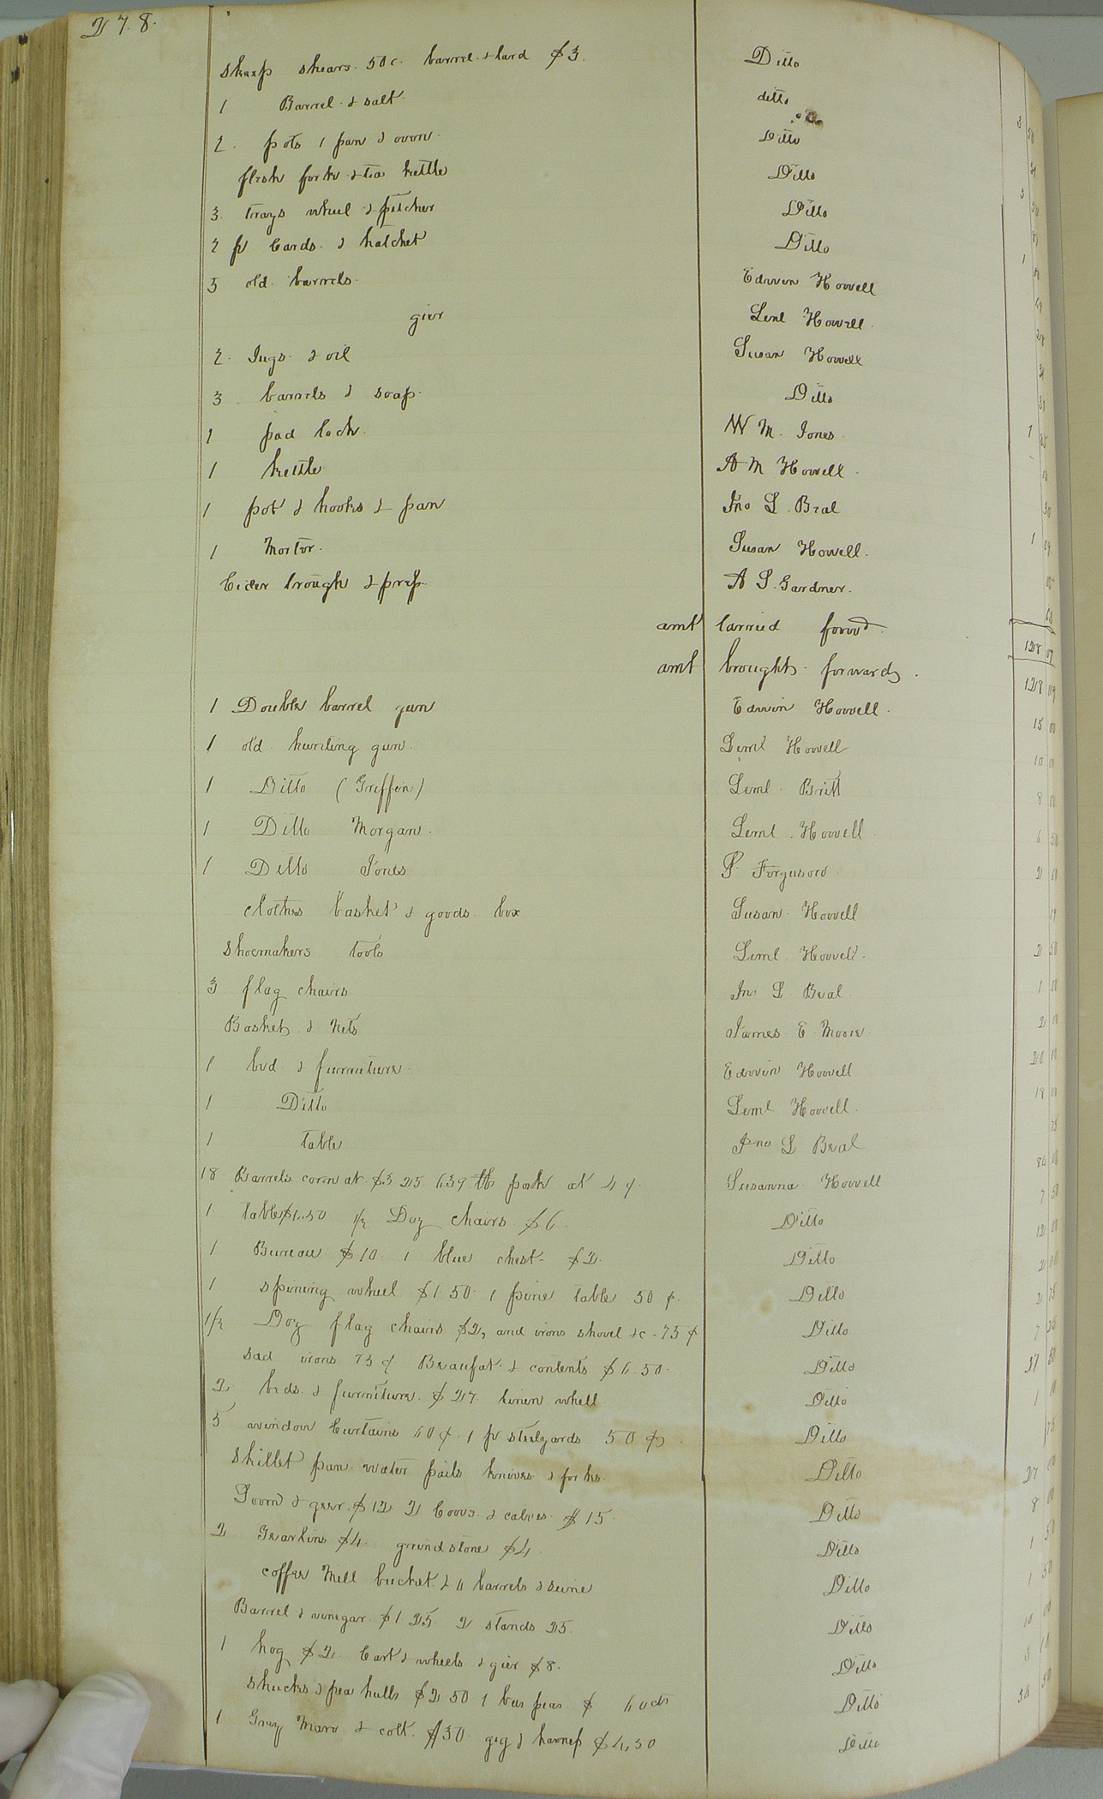 278.
Sheep shears 50c barrel & lard $3. Ditto
1 Barrel & salt ditto
2. pots 1 pan & oven Ditto
flesh fork & tea kettle Ditto
3 trays wheel & pitcher Ditto
2 pr Cards & hatchet Ditto
3 old barrels Edwin Howell
gier Leml Howell
2. Jugs & oil Susan Howell
3 barrels & soap Ditto
1 pad lock W M. Jones
1 kettle A M Howell
1 pot & hooks & pan Jno L. Beal
1 Mortor. Susan Howell.
Cider trough & press A S. Gardner.
amt carried forwd 128 09
amt broughts forwards. 128 09
1 Double barrel gun Edwin Howell. 15 00
1 old hunting gun Leml Howell 10
1 Ditto (Griffin) Leml Britt 8
1 Ditto Morgan. Leml. Howell 6 50
1 Ditto Jones P Forguson 2
clothes basket & goods box Susan Howell
Shoemakers tools Leml Howell. 2 50
3 flag chairs Jno L Beal 1
Basket & nets James E Moore 2
1 bed & furniture Edwin Howell 20
1 Ditto Leml Howell. 18
1 table Jno L Beal
18 Barrels corn at $3 25 639 lbs pork at 4 ¢. Susanna Howell 84
1 table $1.50 1/2 Doz chairs $6 Ditto 7 50
1 Bureau $10 1 blue chest $2 Ditto 12
1 spining wheel $1 50 1 pine table 50 ¢. Ditto 2
1/2 Doz flag chairs $2, and irons shovel &c 75 ¢ Ditto
sad irons 75 ¢ Beaufat & contents $6.50. Ditto 7
2 beds & furniture $27 linen whell Ditto
5 window Curtains 60 ¢ 1 pr stilyards 50 ¢ Ditto 1
Skillet pan water pails knives & forks Ditto
Loom & gear $12 2 Cows & calves $15 Ditto 27
2 Yearlins $4 grind stone $4 Ditto 8
coffee Mill bucket & 4 barrels & seine Ditto 1 50
Barrel & vinegar $1 25 2 stands 25 Ditto 1 50
1 hog $2 Cart & wheels & gier $8. Ditto 10
shucks & pea hulls $2 50 1 bus peas $ 60 cts Ditto 3
1 Gray Mare & colt $30 gig & harness $4,50 Ditto 34 50